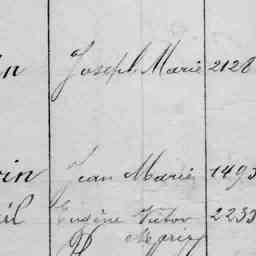 in Joseph Marie 2128
vin Jean Marie 1493
il Eugène Victor 2233
Marie